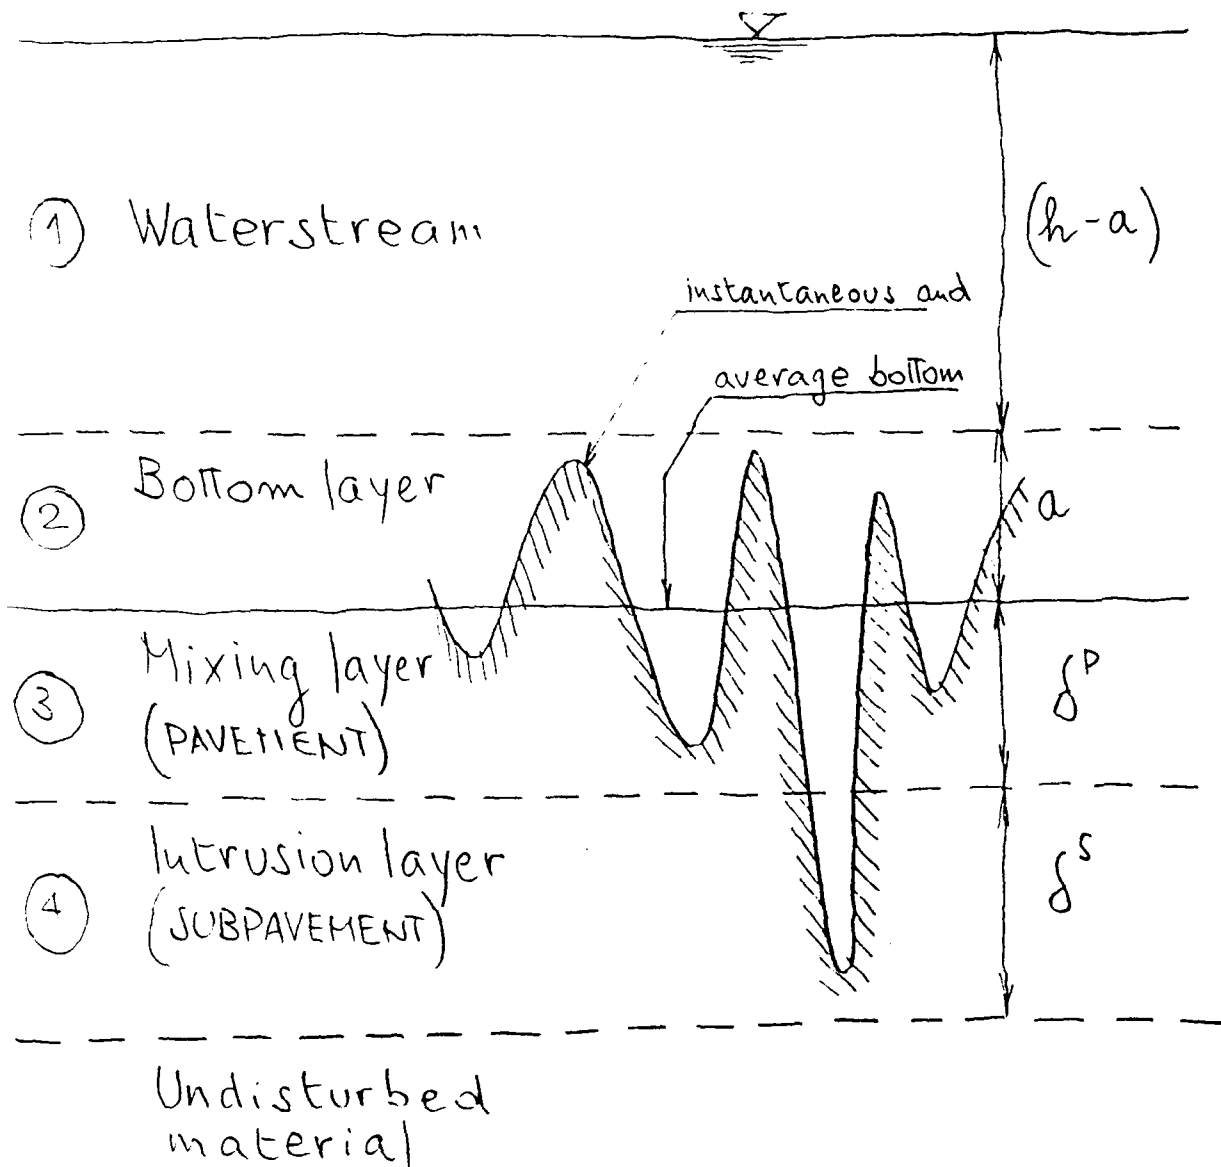 ① Waterstream
(h-a)
instantaneous and
average bottom
② Bottom layer
a
③ Mixing layer
(PAVEMENT)
δᵖ
④ Intrusion layer
(SUBPAVEMENT)
δˢ
Undisturbed
material